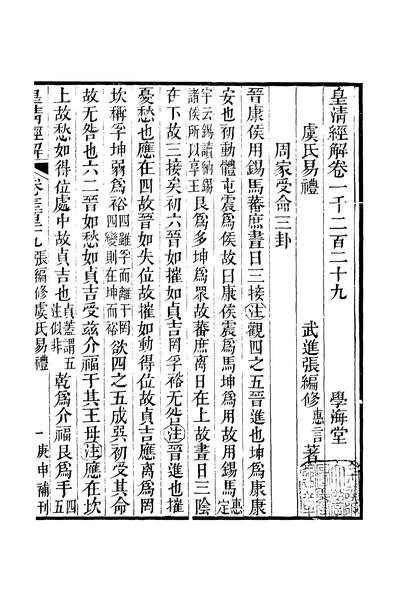 皇清經解卷一千二百二十九　學海堂
虞氏易禮　武進張編修惠言著
周家受命三卦
晉康侯用錫馬蕃庶晝日三接注觀四之五晉進也坤爲康康
安也初動體屯震爲侯故曰康侯震爲馬坤爲用故用錫馬惠定
宇云錫讀納錫諸侯所以享王艮爲多坤爲眾故蕃庶離日在上故晝日三陰
在下故三接矣初六晉如摧如貞吉罔孚裕无咎注晉進也摧
憂愁也應在四故晉如失位故摧如動得位故貞吉應離爲罔
坎稱孚坤弱爲裕四雖孚而離于罔四變則在坤而裕欲四之五成巽初受其命
故无咎也六二晉如愁如貞吉受茲介福于其王母注應在坎
上故愁如得位處中故貞吉也貞蓋謂五注似非乾爲介福艮爲手四
皇清經解　張編修虞氏易禮　一　庚申補刊